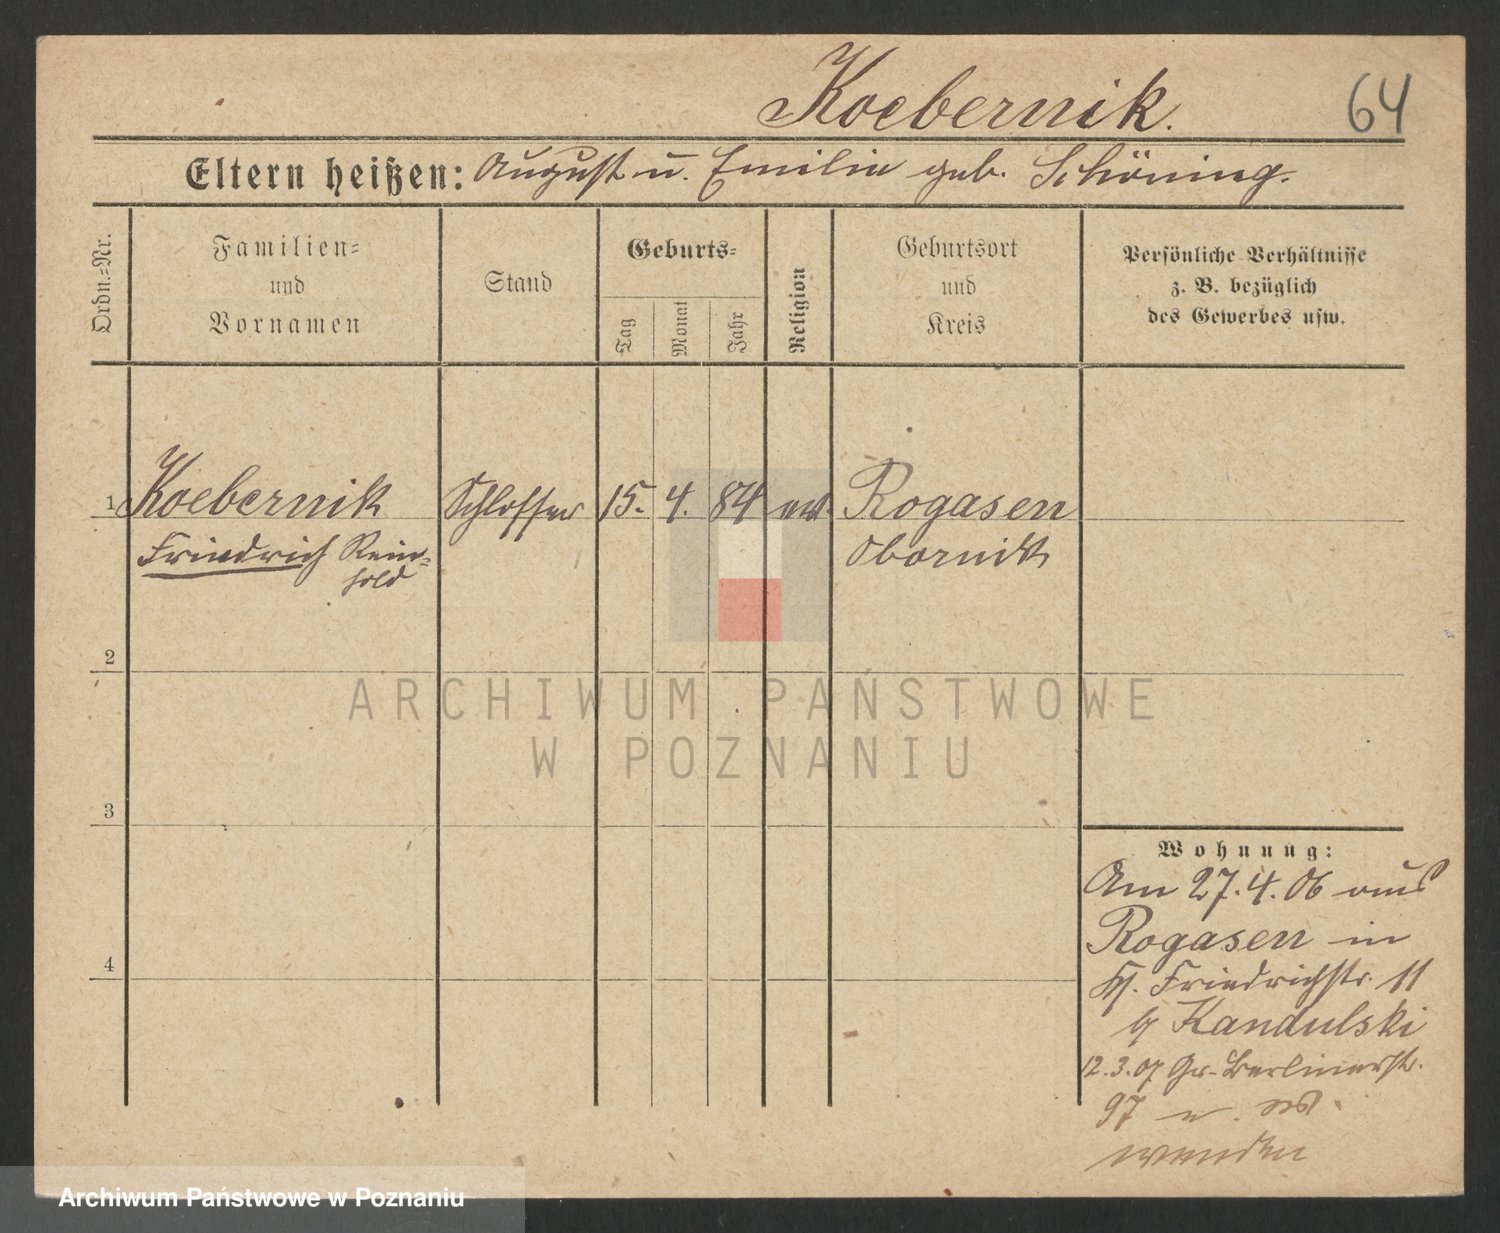 Koebernik.
64
Eltern heißen: August u. Emilie geb. Schöning.
Ordn.=Nr.
Familien=
und
Vornamen
Stand
Geburts=
Tag
Monat
Jahr
Religion
Geburtsort
und
Kreis
Persönliche Verhältnisse
z. B. bezüglich
des Gewerbes usw.
1 Koebernik Schlosser 15. 4. 84 ev. Rogasen
Friedrich Rein=
hold
Obornik
2
3
4
ARCHIWUM PAŃSTWOWE
W POZNANIU
Wohnung:
Am 27.4.06 aus
Rogasen in
Kl. Friedrichstr. 11
b/ Kandulski
12.3.07 Gr. Berlinerstr.
97
Archiwum Państwowe w Poznaniu